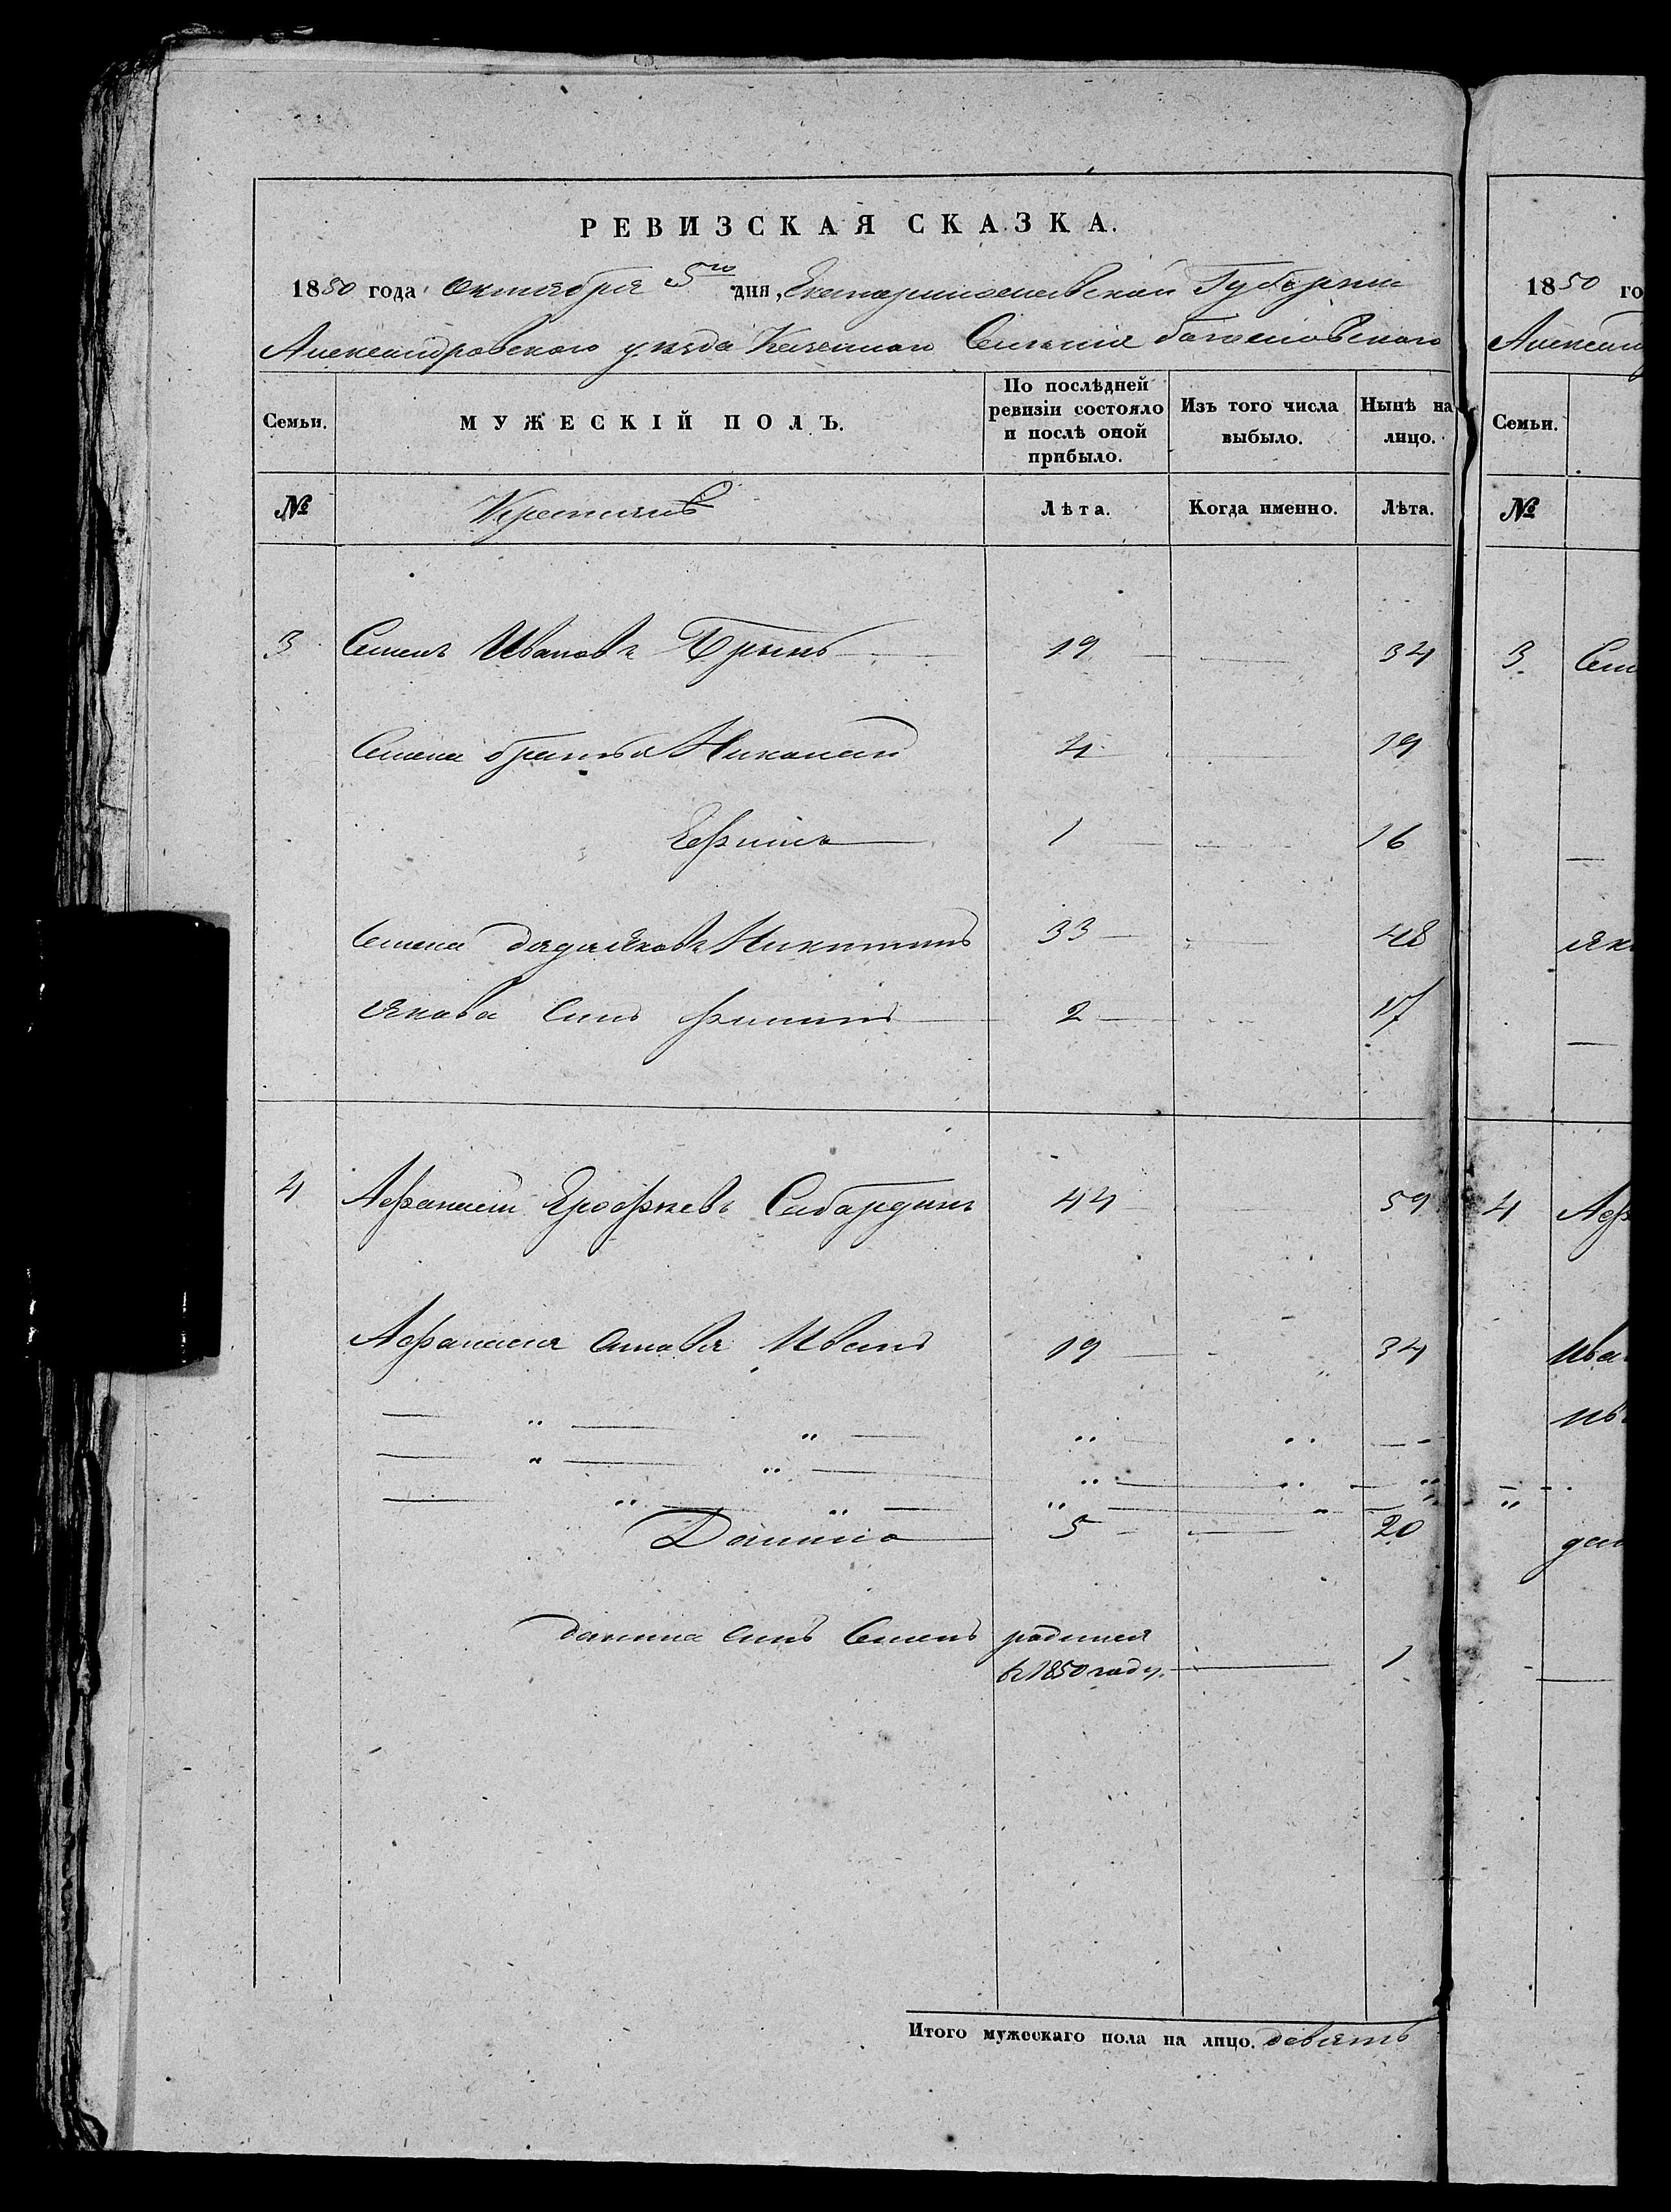 РЕВИЗСКАЯ СКАЗКА.
1850 года Октября 5го дня, Екатеринославской Губернии
Александровского уезда Казенного Селения
Семьи. МУЖЕСКІЙ ПОЛЪ. По послѣдней ревизіи состояло и послѣ оной прибыло. Изъ того числа выбыло. Нынѣ на лицо.
№ Лѣта. Когда именно. Лѣта.
3 Семенъ Ивановъ 19 34
Семена братья 4 19
Ефимъ 1 16
Семена дядя Яковъ Никитинъ 33 48
Якова сынъ 2 17
4 Афанасий Ерофеевъ Сабардинъ 44 59
Афанасия сыновья Иванъ 19 34
Данило 5 20
Данила сынъ Семенъ родился
въ 1850 году. 1
Итого мужескаго пола на лицо. девять
1850 го
Александ
Семьи.
№
3 Сем
Як
4 Аф
Ива
Ив
дан